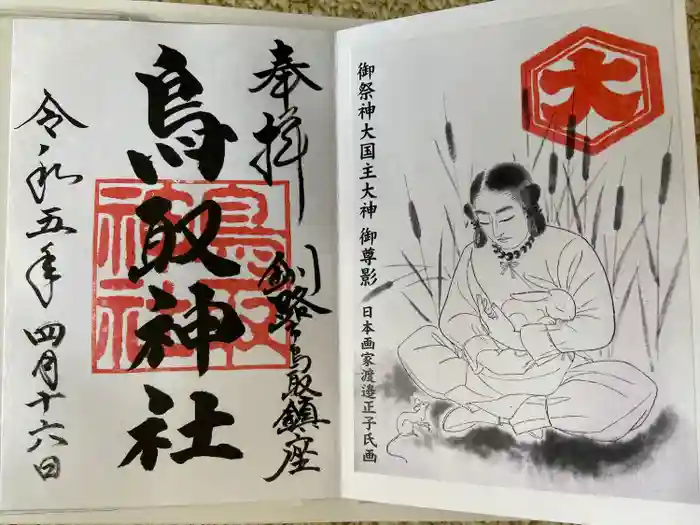 大
御祭神大国主大神 御尊影
日本画家渡邉正子氏画
奉拝
釧路ノ鳥取鎮座
鳥取神社
鳥取神社
令和五年 四月十六日